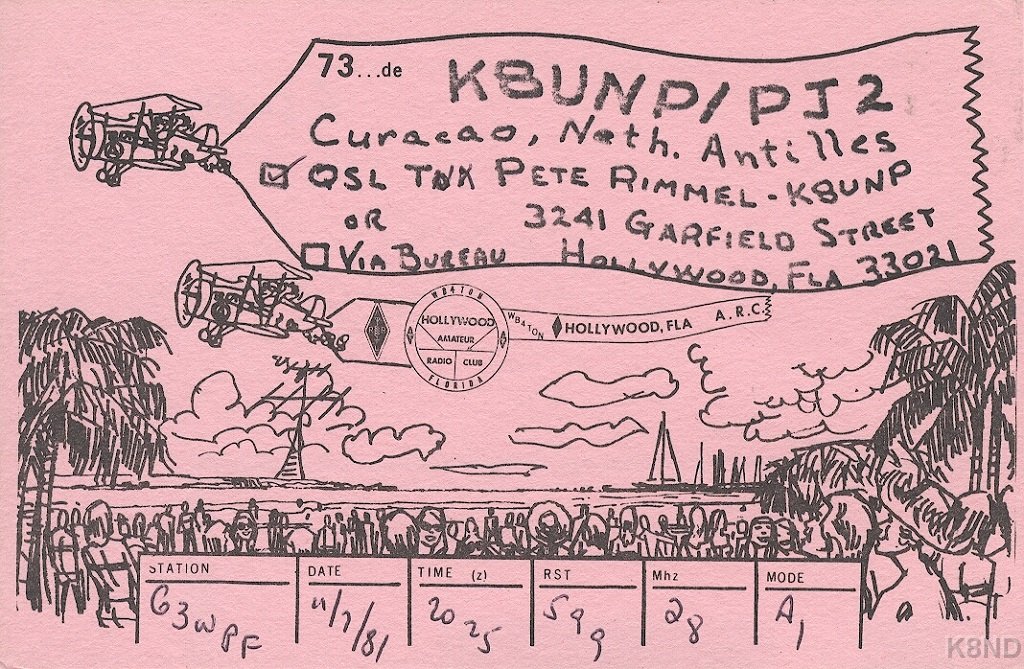 73...de K8UNP/PJ2
Curacao, Neth. Antilles
☑ QSL TNX PETE RIMMEL-K8UNP
OR 3241 GARFIELD STREET
☐ VIA BUREAU HOLLYWOOD, FLA 33021
WB4TON
HOLLYWOOD
AMATEUR
RADIO CLUB
FLORIDA
WB4TON HOLLYWOOD, FLA A.R.C.
STATION DATE TIME (z) RST Mhz MODE
G3WPF 11/7/81 2025 599 28 A1
K8ND